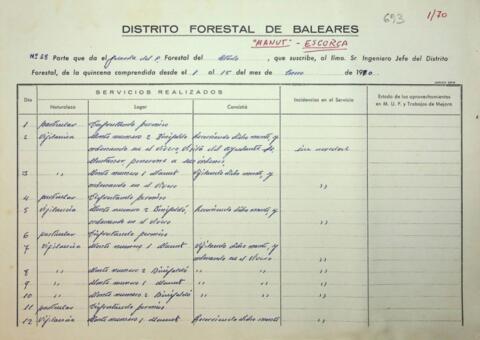 693 1/70
DISTRITO FORESTAL DE BALEARES
"MANUT" - ESCORCA
Parte que da el Guarda del P. Forestal del Estado, que suscribe, al Ilmo. Sr. Ingeniero Jefe del Distrito
Forestal, de la quincena comprendida desde el 1 al 15 del mes de Enero de 1970.
SERVICIOS REALIZADOS
Día Naturaleza Lugar Consistió Incidencias en el Servicio Estado de los aprovechamientos
en M. U. P. y Trabajos de Mejora
1 particular Disfrutando permiso
2 Vigilancia Monte numero 2 Binifaldó Recorriendo dicho monte, y
ordenando en el vivero, visita del ayudante Sr.
ponerme a sus ordenes sin novedad
3 ,, Monte numero 1 Manut Vigilando dicho monte, y
ordenando en el vivero ,,
4 particular Disfrutando permiso
5 Vigilancia Monte numero 2 Binifaldó, Recorriendo dicho monte, y
ordenando en el vivero ,,
6 particular Disfrutando permiso
7 Vigilancia Monte numero 1 Manut Vigilando dicho monte, y
ordenando en el vivero ,,
8 ,, Monte numero 2 Binifaldó ,, ,, ,,
9 ,, Monte numero 1 Manut ,, ,, ,,
10 ,, Monte numero 2 Binifaldó ,, ,, ,,
11 particular Disfrutando permiso
12 Vigilancia Monte numero 1 Manut Recorriendo dicho monte ,,